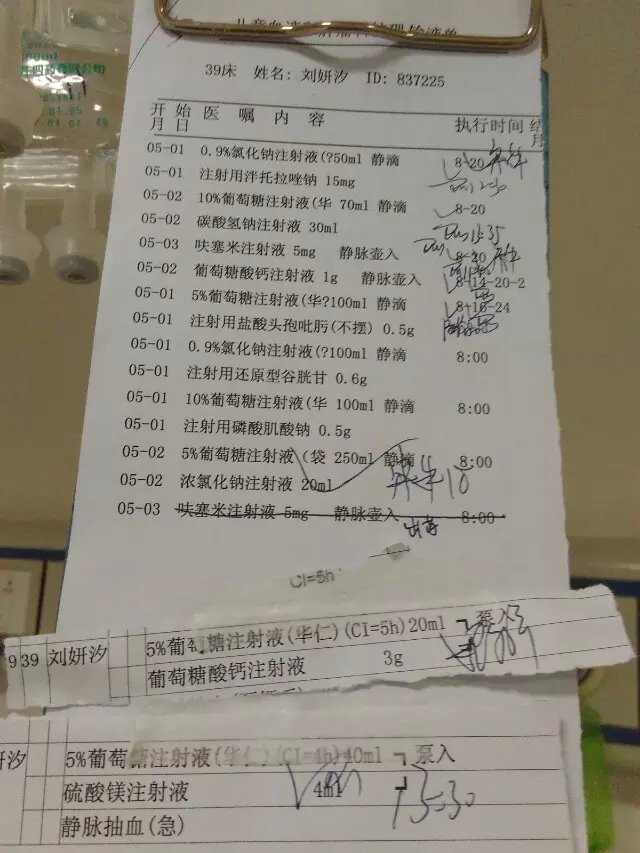 39床 姓名: 刘妍汐 ID: 837225
开始 医嘱内容 执行时间 结
月 日 月
05-01 0.9%氯化钠注射液(?50ml 静滴 8-20
05-01 注射用泮托拉唑钠 15mg 12:30
05-02 10%葡萄糖注射液(华 70ml 静滴 8-20
05-02 碳酸氢钠注射液 30ml
05-03 呋塞米注射液 5mg 静脉壶入 8-20
05-02 葡萄糖酸钙注射液 1g 静脉壶入 8-14-20-2
05-01 5%葡萄糖注射液(华?100ml 静滴 8-16-24
05-01 注射用盐酸头孢吡肟(不摆) 0.5g
05-01 0.9%氯化钠注射液(?100ml 静滴 8:00
05-01 注射用还原型谷胱甘 0.6g
05-01 10%葡萄糖注射液(华 100ml 静滴 8:00
05-01 注射用磷酸肌酸钠 0.5g
05-02 5%葡萄糖注射液(袋 250ml 静滴 8:00
05-02 浓氯化钠注射液 20ml
05-03 呋塞米注射液 5mg 静脉壶入 8:00
CI=5h
9 39 刘妍汐 5%葡萄糖注射液(华仁)(CI=5h)20ml 泵入
葡萄糖酸钙注射液 3g
妍汐 5%葡萄糖注射液(华仁)(CI=4h)40ml 泵入
硫酸镁注射液 4ml
静脉抽血(急)